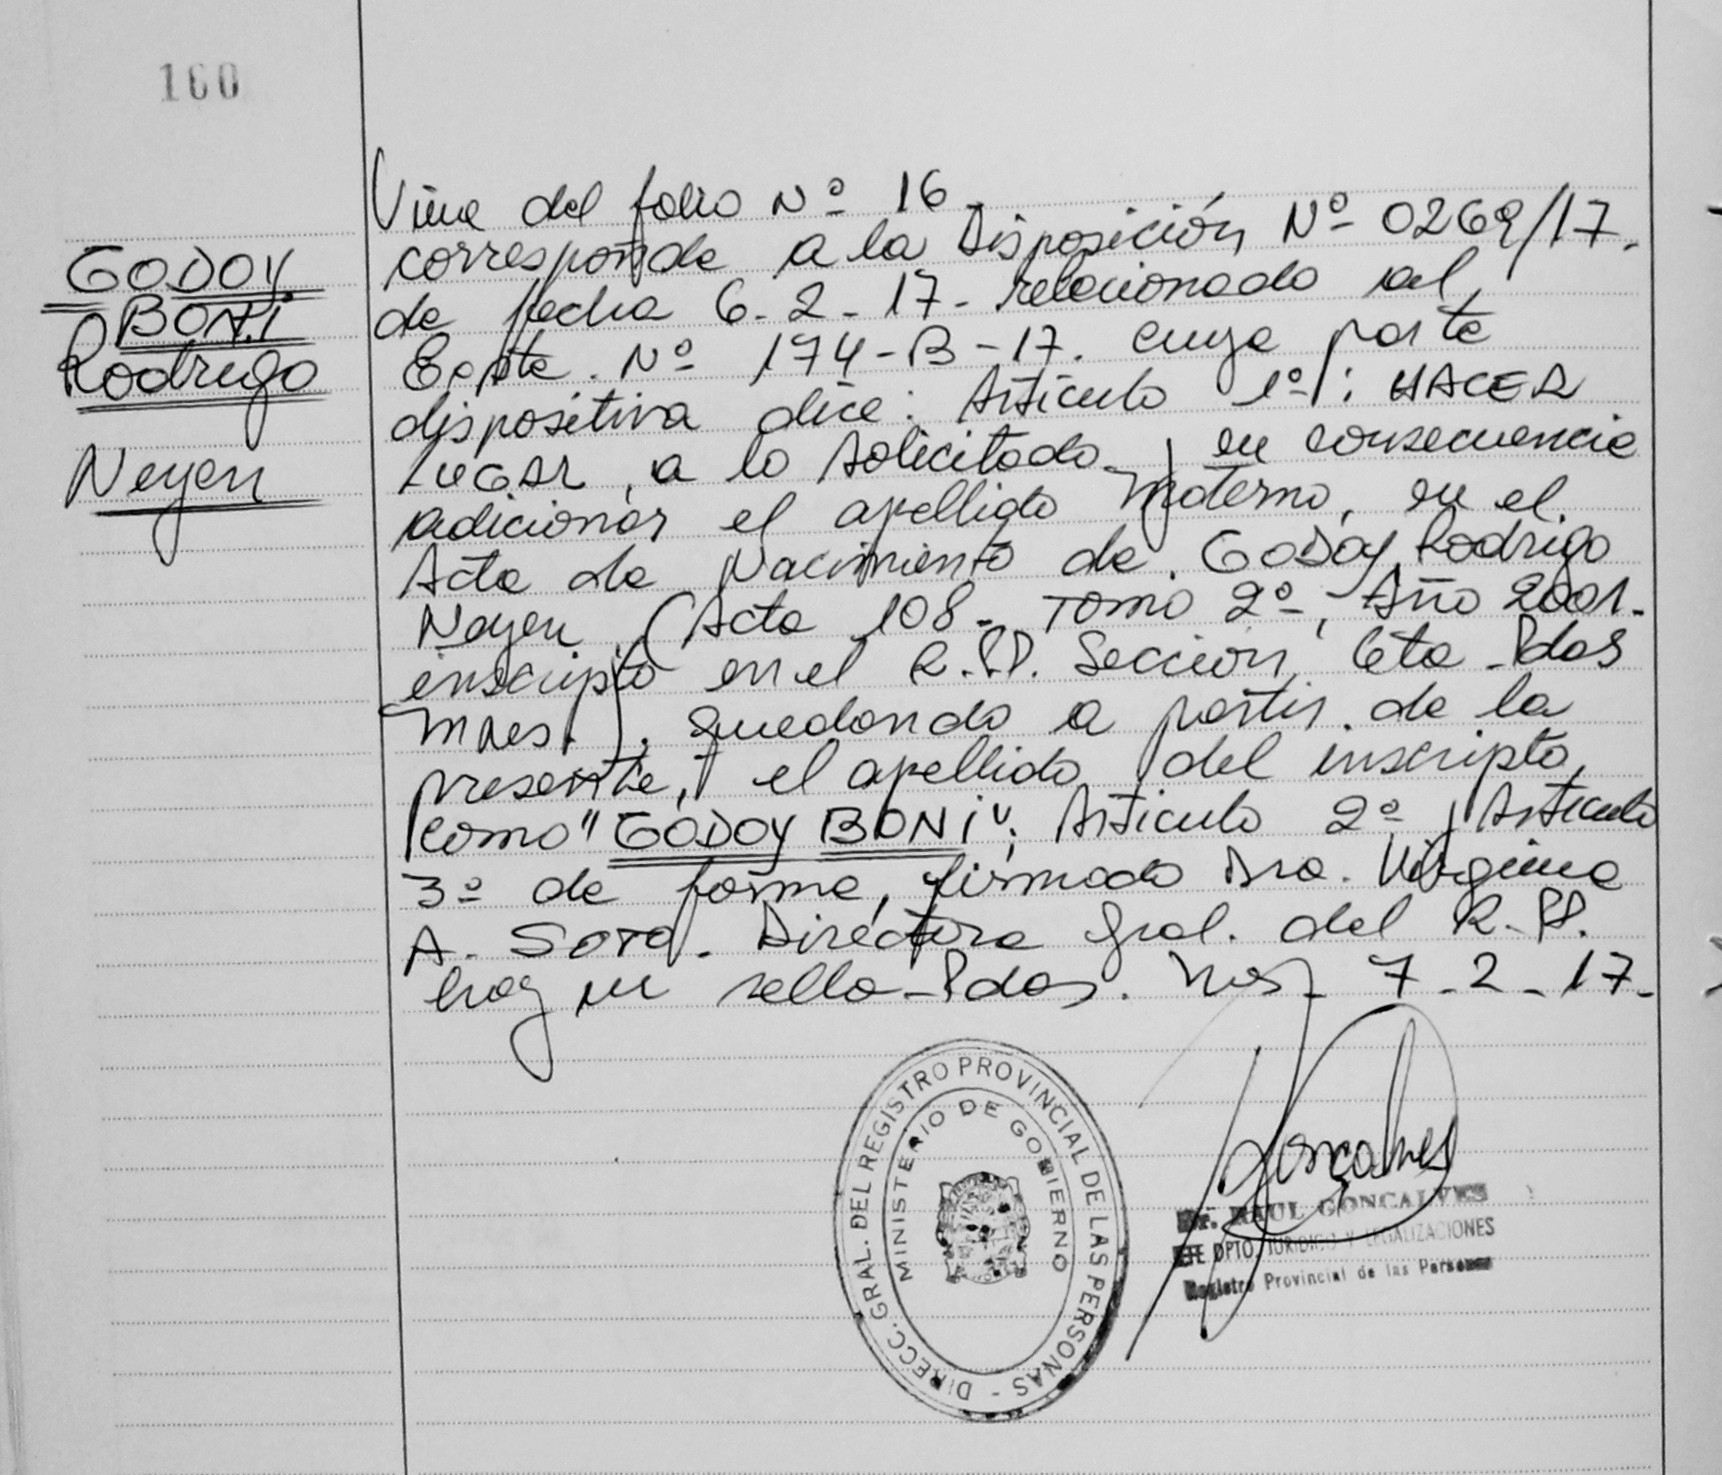 160
GODOY
BONI
Rodrigo
Neyen
Viene del folio Nº 16 -
corresponde a la Disposición Nº 0269/17.
de fecha 6-2-17- relacionado al
Expte. Nº 174-B-17. cuya parte
dispositiva dice: Artículo 1º: HACER
LUGAR, a lo solicitado y en consecuencia
adicionar el apellido materno, en el
Acta de Nacimiento de GODOY Rodrigo
Neyen (Acta 108- Tomo 2º-, Año 2001-
inscripto en el R.PP. Sección 6ta Pdas
Mnes.). quedando a partir de la
presente, el apellido del inscripto
como "GODOY BONI"; Artículo 2º y Artículo
3º de forma, firmado Dra. Virginia
A. SOTO. Directora Gral. del R.PP.
hay un sello-Pdas. Mnes- 7-2-17-
DIRECC. GRAL. DEL REGISTRO PROVINCIAL DE LAS PERSONAS -
MINISTERIO DE GOBIERNO
Goncalves
Dr. RAUL GONCALVES
JEFE DPTO. JURIDICO Y LEGALIZACIONES
Registro Provincial de las Personas